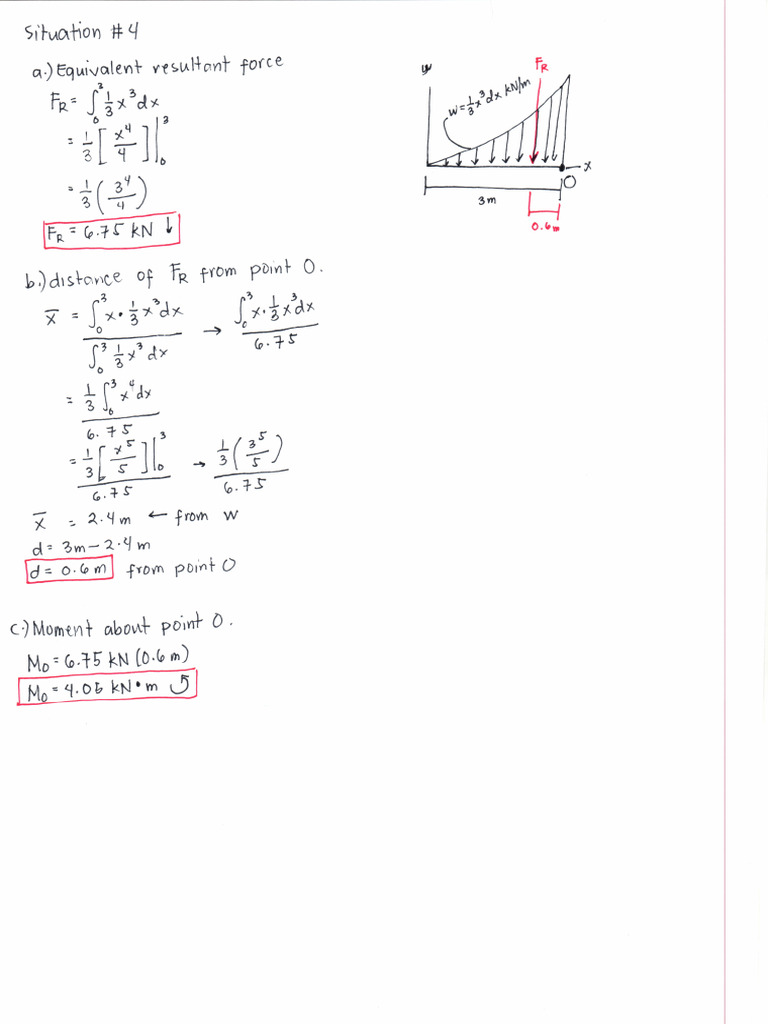 Situation #4
a.) Equivalent resultant force
F_R = ∫₀³ 1/3 x³ dx
= 1/3 [x⁴/4]|₀³
= 1/3 (3⁴/4)
F_R = 6.75 KN ↓
w
F_R
w = 1/3 x³ dx KN/m
x
O
3m
0.6m
b.) distance of F_R from point O.
x̄ = ∫₀³ x • 1/3 x³ dx / ∫₀³ 1/3 x³ dx → ∫₀³ x • 1/3 x³ dx / 6.75
= 1/3 ∫₀³ x⁴ dx / 6.75
= 1/3 [x⁵/5]|₀³ / 6.75 → 1/3 (3⁵/5) / 6.75
x̄ = 2.4m ← from w
d = 3m – 2.4m
d = 0.6m from point O
c.) Moment about point O.
M_O = 6.75 KN (0.6m)
M_O = 4.05 KN•m ↺